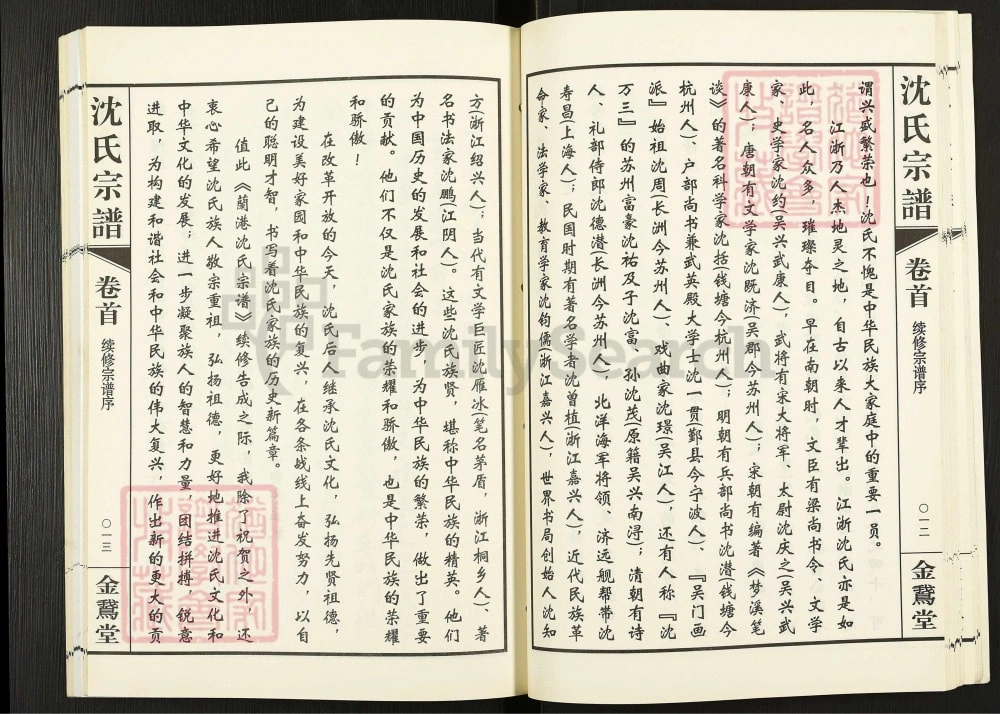 沈氏宗譜
卷首
续修宗谱序
〇一二
金鵞堂
谓兴盛繁荣也！沈氏不愧是中华民族大家庭中的重要一员。
江浙乃人杰地灵之地，自古以来人才辈出。江浙沈氏亦是如
此，名人众多，璀璨夺目。早在南朝时，文臣有梁尚书令、文学
家、史学家沈约(吴兴武康人)，武将有宋大将军、太尉沈庆之(吴兴武
康人)；唐朝有文学家沈既济(吴郡今苏州人)；宋朝有编著《梦溪笔
谈》的著名科学家沈括(钱塘今杭州人)；明朝有兵部尚书沈潜(钱塘今
杭州人)、户部尚书兼武英殿大学士沈一贯(鄞县今宁波人)、『吴门画
派』始祖沈周(长洲今苏州人)、戏曲家沈璟(吴江人)，还有人称『沈
万三』的苏州富豪沈祐及子沈富、孙沈茂(原籍吴兴南浔)；清朝有诗
人、礼部侍郎沈德潜(长洲今苏州人)、北洋海军将领、济远舰帮带沈
寿昌(上海人)；民国时期有著名学者沈曾植(浙江嘉兴人)，近代民族革
命家、法学家、教育学家沈钧儒(浙江嘉兴人)，世界书局创始人沈知
方(浙江绍兴人)；当代有文学巨匠沈雁冰(笔名茅盾，浙江桐乡人)、著
名书法家沈鹏(江阴人)。这些沈氏族贤，堪称中华民族的精英。他们
为中国历史的发展和社会的进步，为中华民族的繁荣，做出了重要
的贡献。他们不仅是沈氏家族的荣耀和骄傲，也是中华民族的荣耀
和骄傲！
在改革开放的今天，沈氏后人继承沈氏文化，弘扬先贤祖德，
为建设美好家园和中华民族的复兴，在各条战线上奋发努力，以自
己的聪明才智，书写着沈氏家族的历史新篇章。
值此《蘭港沈氏宗谱》续修告成之际，我除了祝贺之外，还
衷心希望沈氏族人敬宗重祖，弘扬祖德，更好地推进沈氏文化和
中华文化的发展；进一步凝聚族人的智慧和力量，团结拼搏，锐意
进取，为构建和谐社会和中华民族的伟大复兴，作出新的更大的贡
沈氏宗譜
卷首
续修宗谱序
〇一三
金鵞堂
FamilySearch